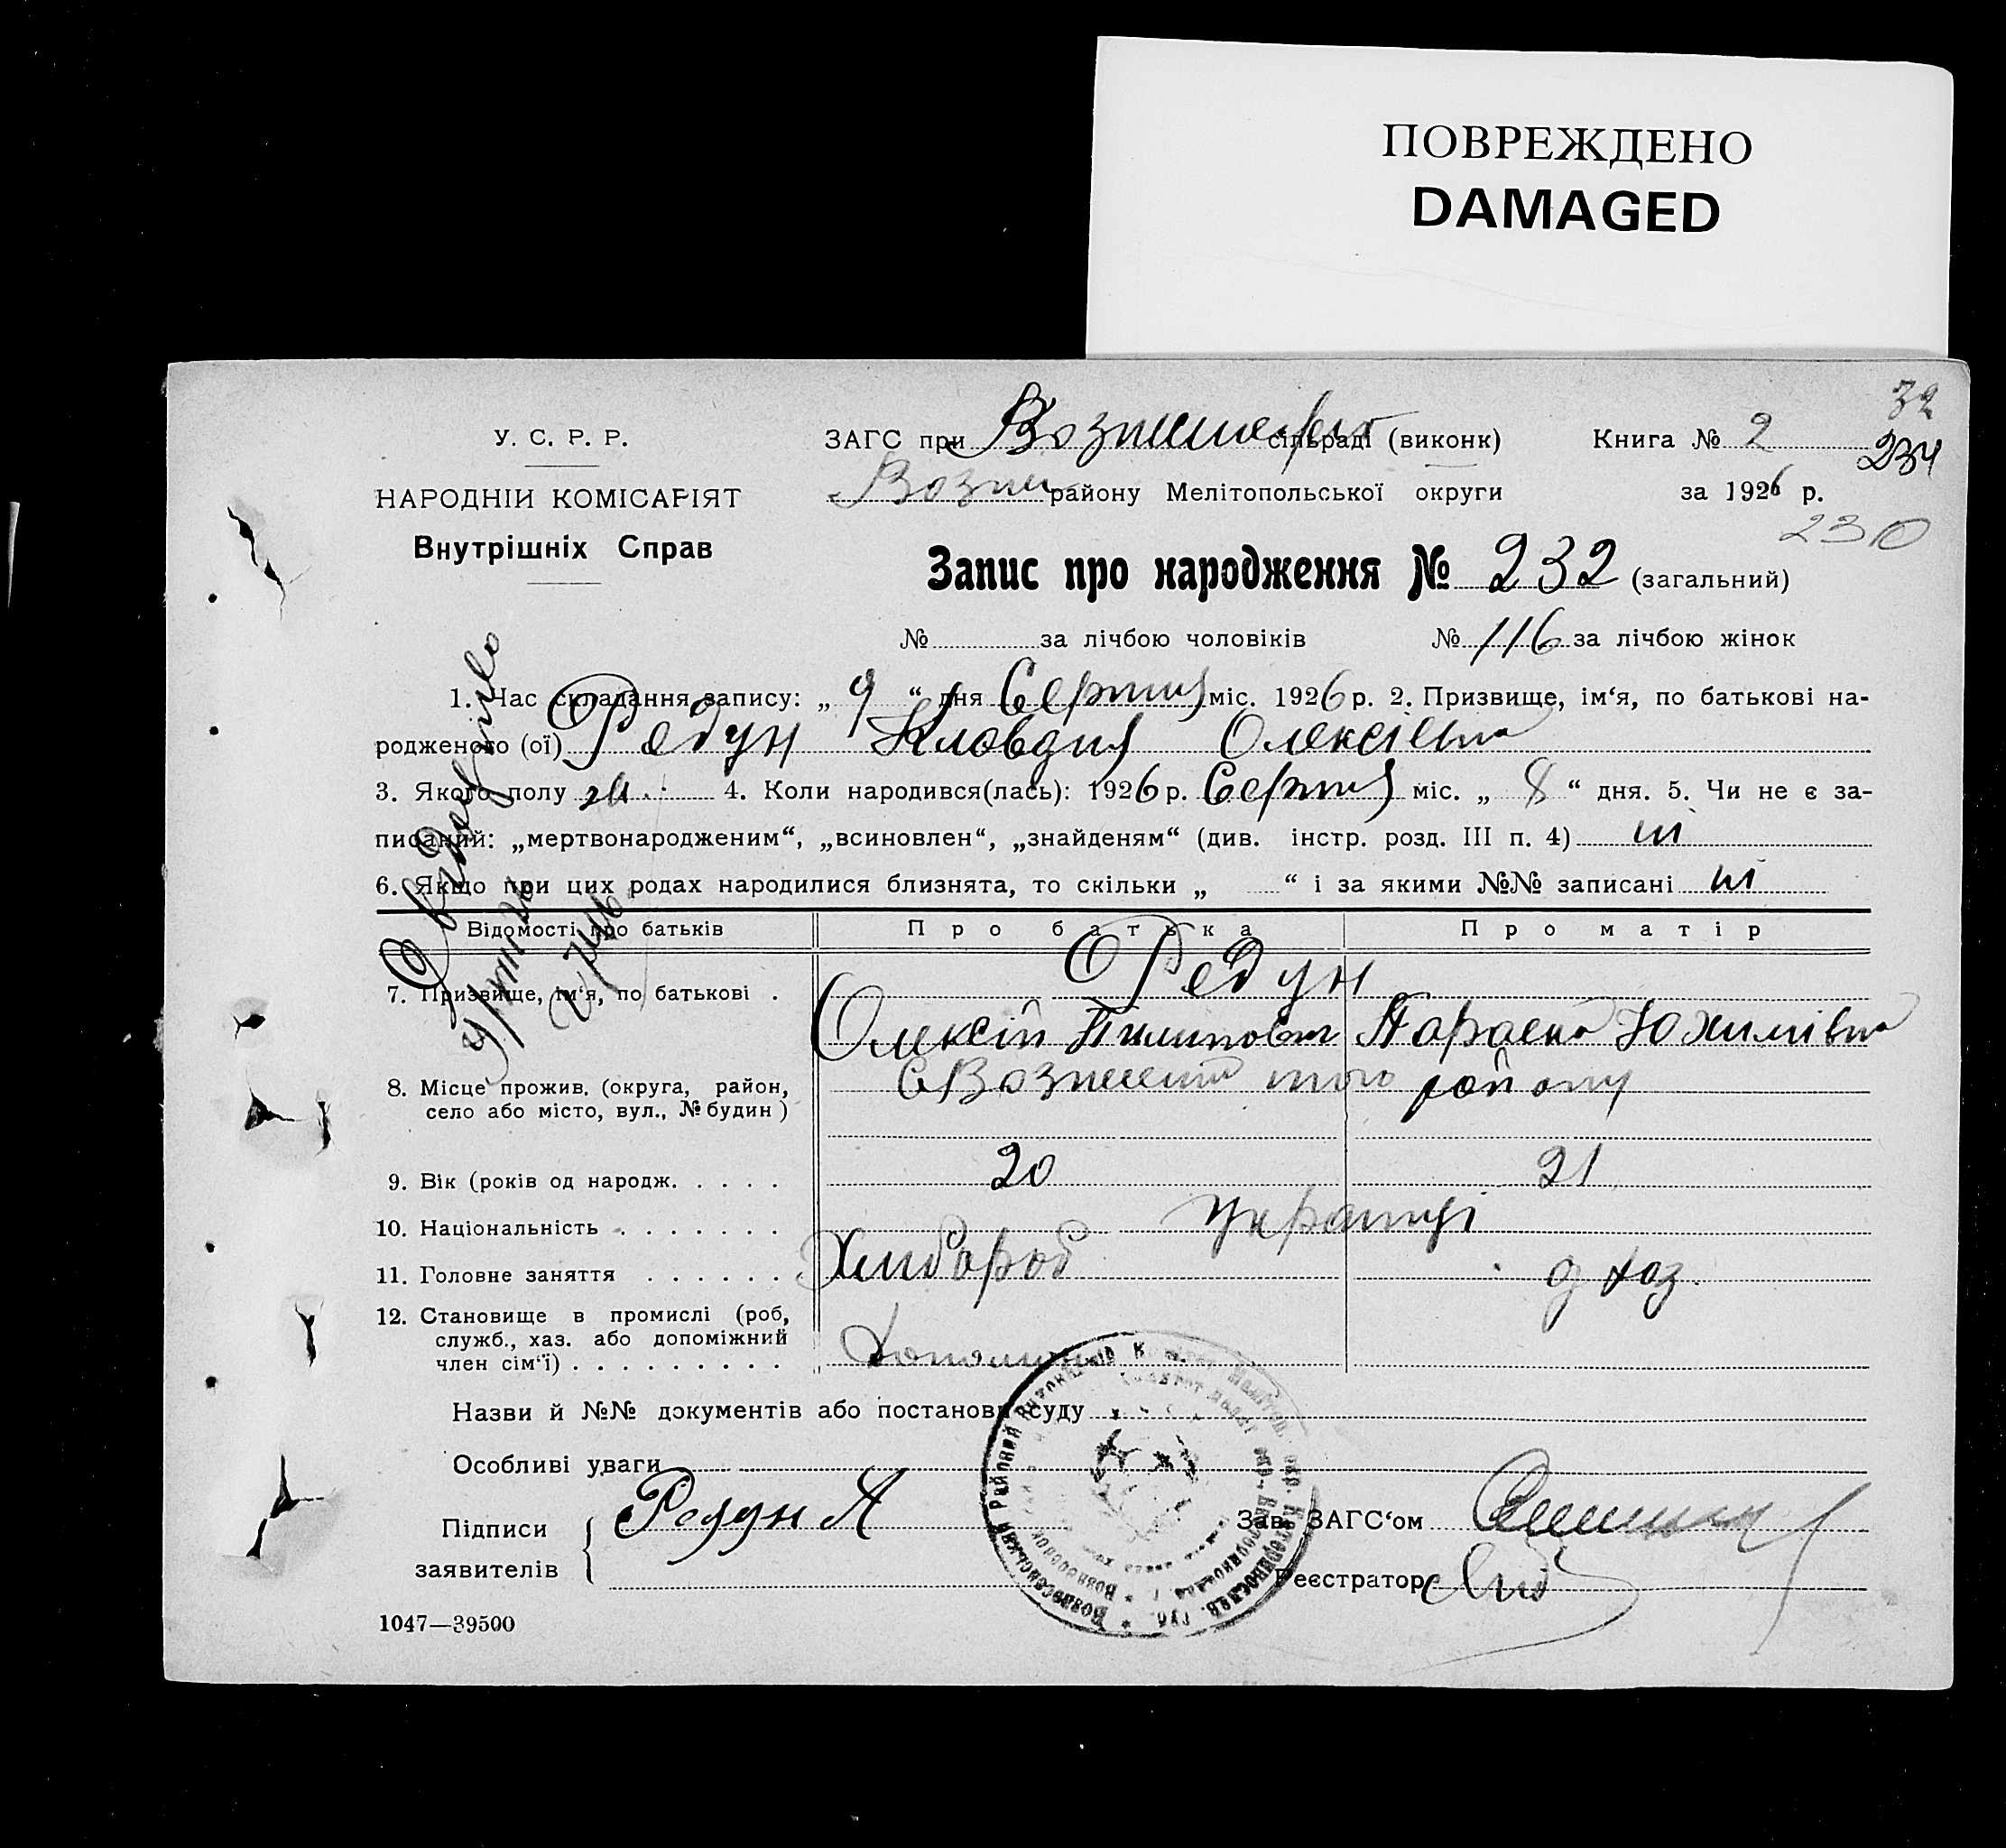 ПОВРЕЖДЕНО
DAMAGED
32
У. С. Р. Р.
ЗАГС при сільраді (виконк) Книга № 2
234
НАРОДНІЙ КОМІСАРІЯТ
Возне району Мелітопольської округи за 1926 р.
230
Внутрішніх Справ
Запис про народження № 232 (загальний)
№ за лічбою чоловіків № 116 за лічбою жінок
1. Час складання запису: „ 9 “ дня Серпня міс. 1926 р. 2. Призвище, ім‘я, по батькові на-
родженого (ої) Редун Кловдия Олексієвна
3. Якого полу ж. 4. Коли народився(лась): 1926 р. Серпня міс. „ 8 “ дня. 5. Чи не є за-
писаний: „мертвонародженим“, „всиновлен“, „знайденям“ (див. інстр. розд. III п. 4) ні
6. Якщо при цих родах народилися близнята, то скільки „ “ і за якими №№ записані ні
Відомості про батьків Про батька Про матір
7. Призвище, ім‘я, по батькові . Редун
Олексій Пилипович Параска Юхимівна
8. Місце прожив. (округа, район, село або місто, вул., № будин) с Вознесенка того району
9. Вік (років од народж. . . . . 20 21
10. Національність . . . . . . . Українці
11. Головне заняття . . . . . . Хлибороб д хаз.
12. Становище в промислі (роб,
служб., хаз. або допоміжний
член сім‘ї) . . . . . . . . .
Назви й №№ документів або постанови суду
Особливі уваги
Підписи Редун А Зав. ЗАГС‘ом
заявителів Реєстратор
1047—39500